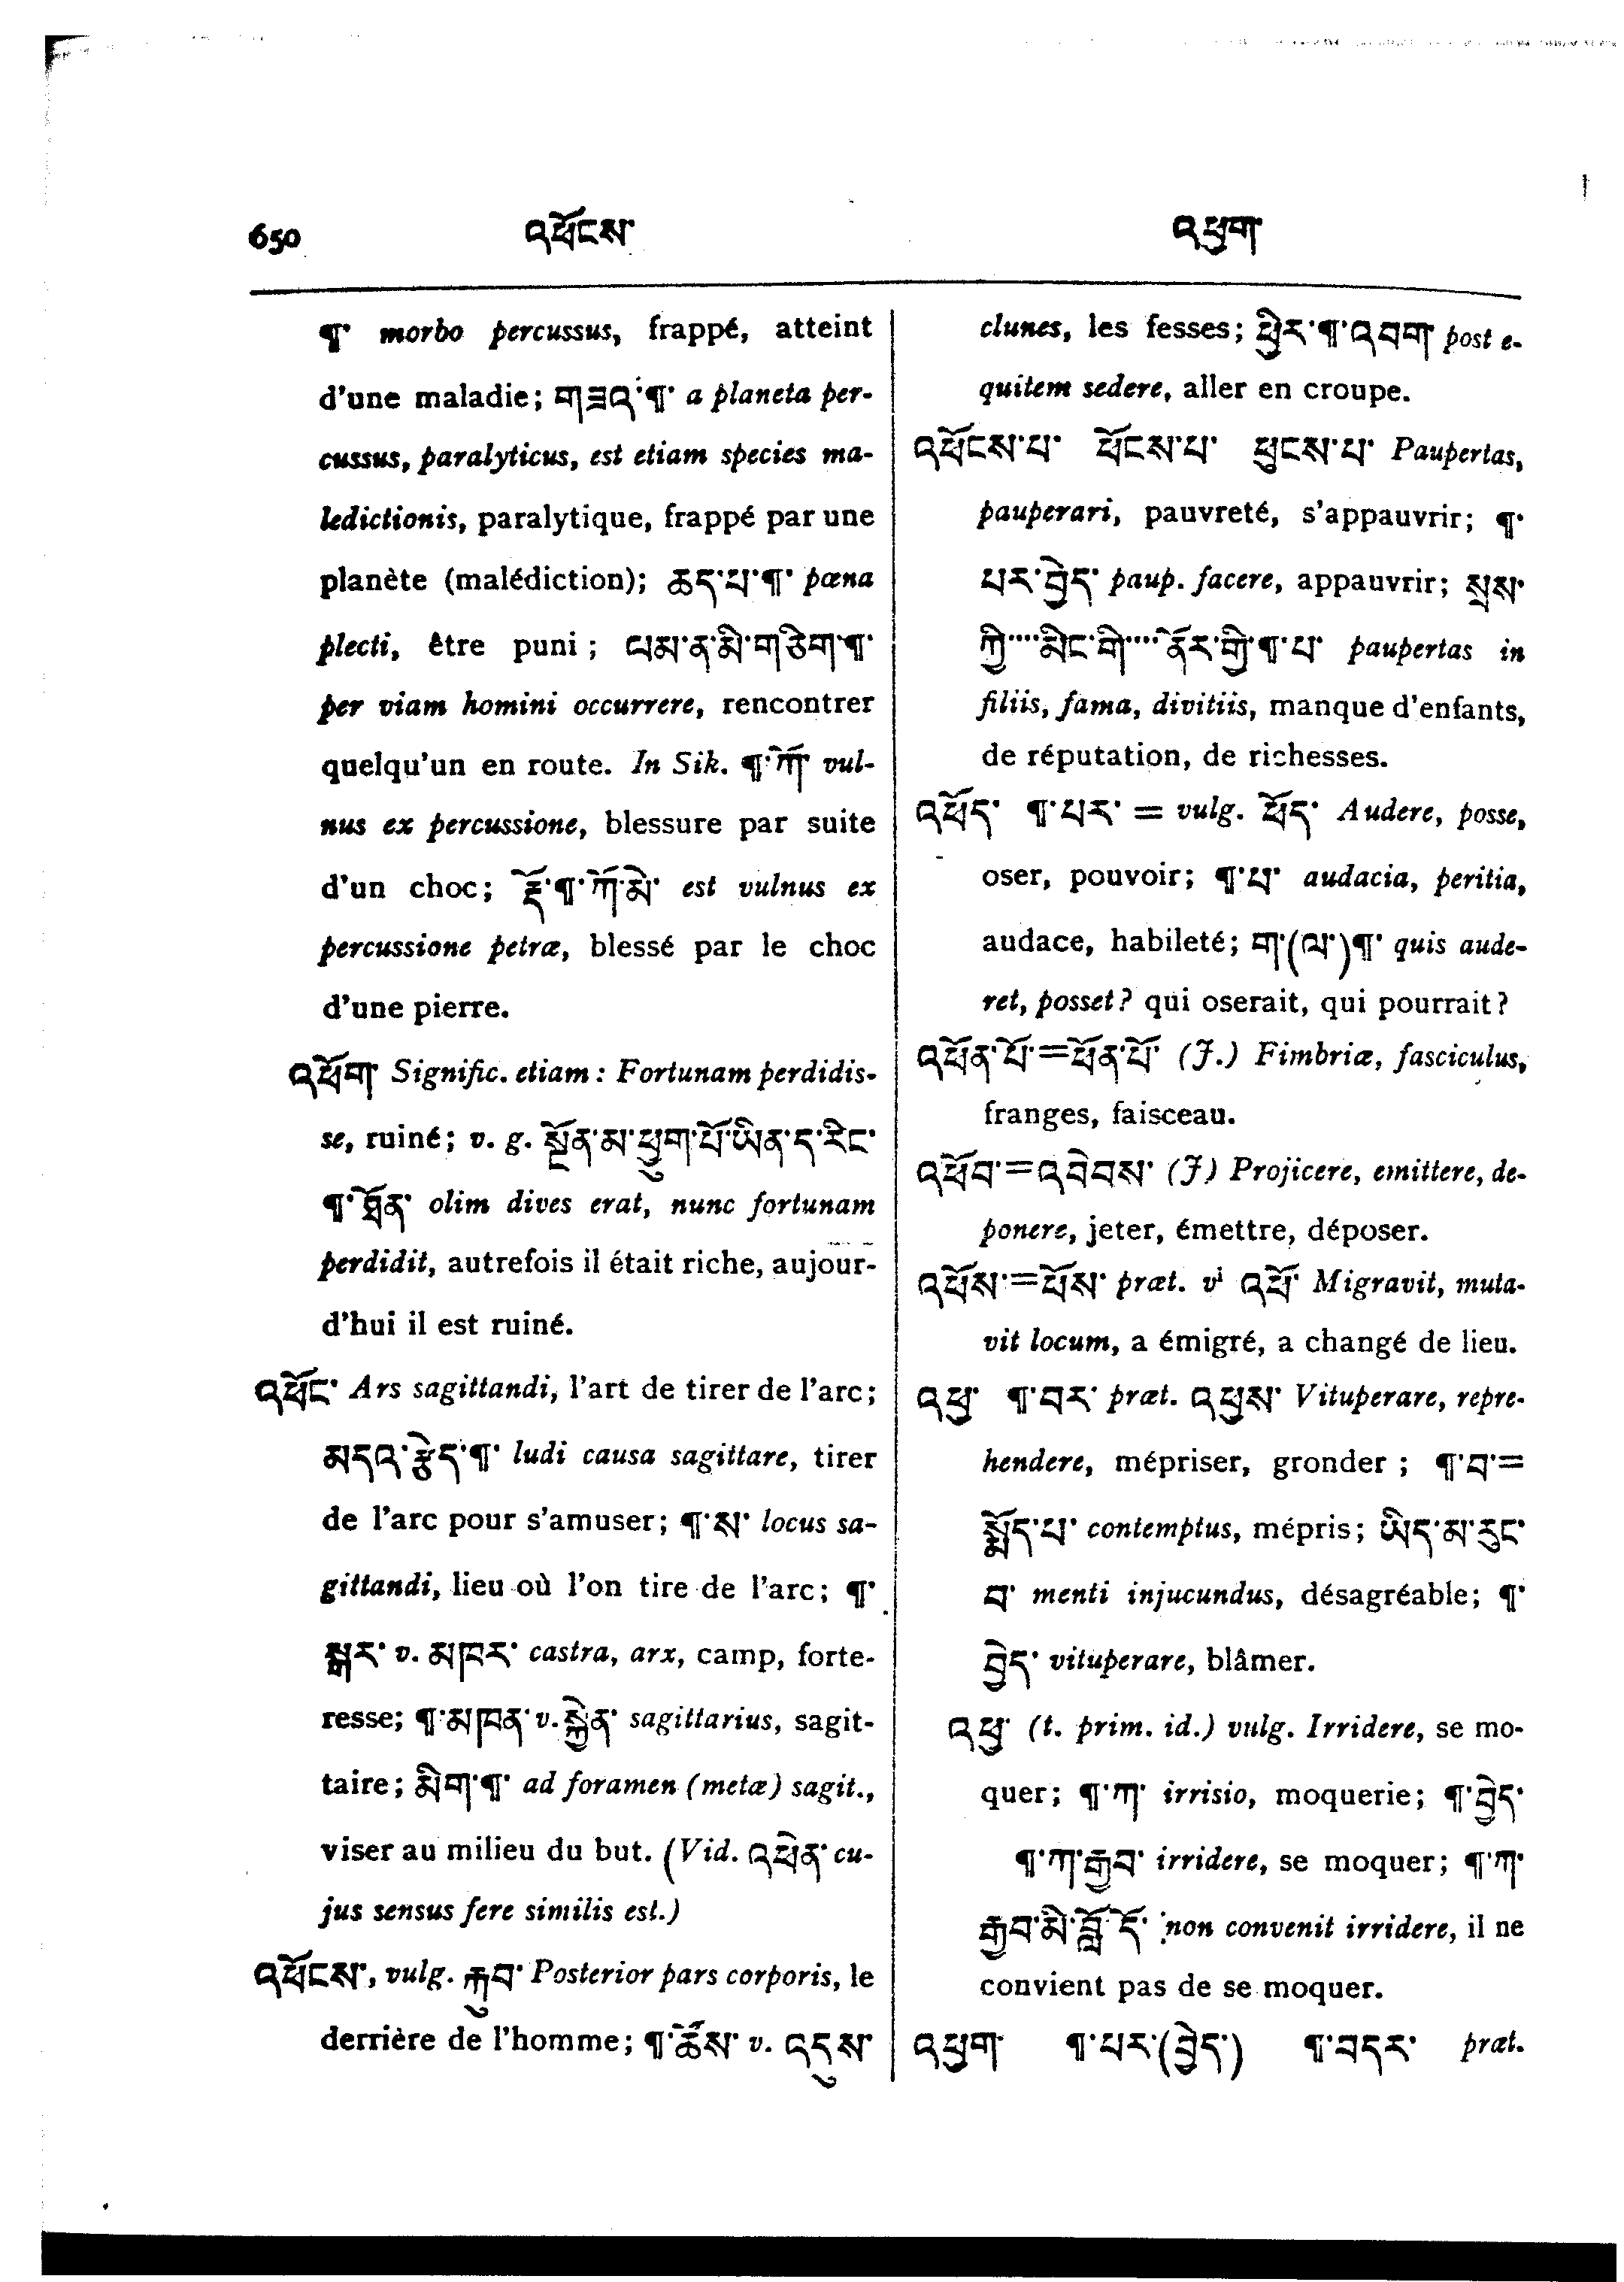 650 འཕོངས་ འཕྱག
¶་ morbo percussus, frappé, atteint
d'une maladie; གཟའ་¶་ a planeta per-
cussus, paralyticus, est etiam species ma-
ledictionis, paralytique, frappé par une
planète (malédiction); ཆད་པ་¶་ pœna
plecti, être puni; ལམ་ན་མི་གཅིག་¶་
per viam homini occurrere, rencontrer
quelqu'un en route. In Sik. ¶་ཀོ་ vul-
nus ex percussione, blessure par suite
d'un choc; རྡོ་¶་ཀོ་མེ་ est vulnus ex
percussione petræ, blessé par le choc
d'une pierre.
འཕོག Signific. etiam: Fortunam perdidis-
se, ruiné; v. g. སྔོན་མ་ཕྱུག་པོ་ཡིན་ད་རིང་
¶་ཐོན་ olim dives erat, nunc fortunam
perdidit, autrefois il était riche, aujour-
d'hui il est ruiné.
འཕོང་ Ars sagittandi, l'art de tirer de l'arc;
མདའ་རྩེད་¶་ ludi causa sagittare, tirer
de l'arc pour s'amuser; ¶་ས་ locus sa-
gittandi, lieu où l'on tire de l'arc; ¶་
སྒར་ v. མཁར་ castra, arx, camp, forte-
resse; ¶་མཁན་ v. སྐྱེན་ sagittarius, sagit-
taire; མིག་¶་ ad foramen (metæ) sagit.,
viser au milieu du but. (Vid. འཕེན་ cu-
jus sensus fere similis est.)
འཕོངས་, vulg. རྐུབ་ Posterior pars corporis, le
derrière de l'homme; ¶་ཚོས་ v. འདུས་
clunes, les fesses; ཕྱིར་¶་འབག post e-
quitem sedere, aller en croupe.
འཕོངས་པ་ ཕོངས་པ་ ཕུངས་པ་ Paupertas,
pauperari, pauvreté, s'appauvrir; ¶་
པར་བྱེད་ paup. facere, appauvrir; སྲས་
ཀྱི་···མིང་གི་···ནོར་གྱི་¶་པ་ paupertas in
filiis, fama, divitiis, manque d'enfants,
de réputation, de richesses.
འཕོད་ ¶་པར་ = vulg. ཕོད་ Audere, posse,
oser, pouvoir; ¶་པ་ audacia, peritia,
audace, habileté; ག་(ལ་)¶་ quis aude-
ret, posset? qui oserait, qui pourrait?
འཕོན་པོ་=ཕོན་པོ་ (J.) Fimbriæ, fasciculus,
franges, faisceau.
འཕོབ་=འབེབས་ (J) Projicere, emittere, de-
ponere, jeter, émettre, déposer.
འཕོས་=ཕོས་ præt. vi འཕོ་ Migravit, muta-
vit locum, a émigré, a changé de lieu.
འཕྱ་ ¶་བར་ præt. འཕྱས་ Vituperare, repre-
hendere, mépriser, gronder; ¶་བ་=
སྨོད་པ་ contemptus, mépris; ཡིད་མ་རུང་
བ་ menti injucundus, désagréable; ¶་
བྱེད་ vituperare, blâmer.
འཕྱ་ (t. prim. id.) vulg. Irridere, se mo-
quer; ¶་ཀ་ irrisio, moquerie; ¶་བྱེད་
¶་ཀ་རྒྱབ་ irridere, se moquer; ¶་ཀ་
རྒྱབ་མི་བློ་དོ་ non convenit irridere, il ne
convient pas de se moquer.
འཕྱག ¶་པར་(བྱེད་) ¶་བདར་ præt.